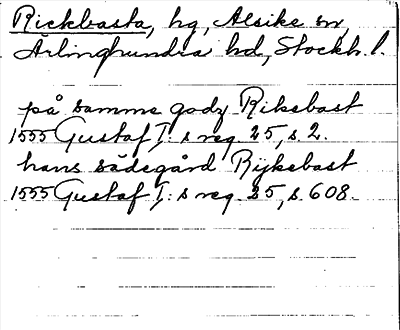 Rickbasta, hg, Alsike sn,
Ärlinghundra hd, Stockh. l.
på samme godz Rikebast
1555 Gustaf I: s reg. 25, s. 2.
hans sädegård Rijkebast
1555 Gustaf I: s reg. 25, s. 608.